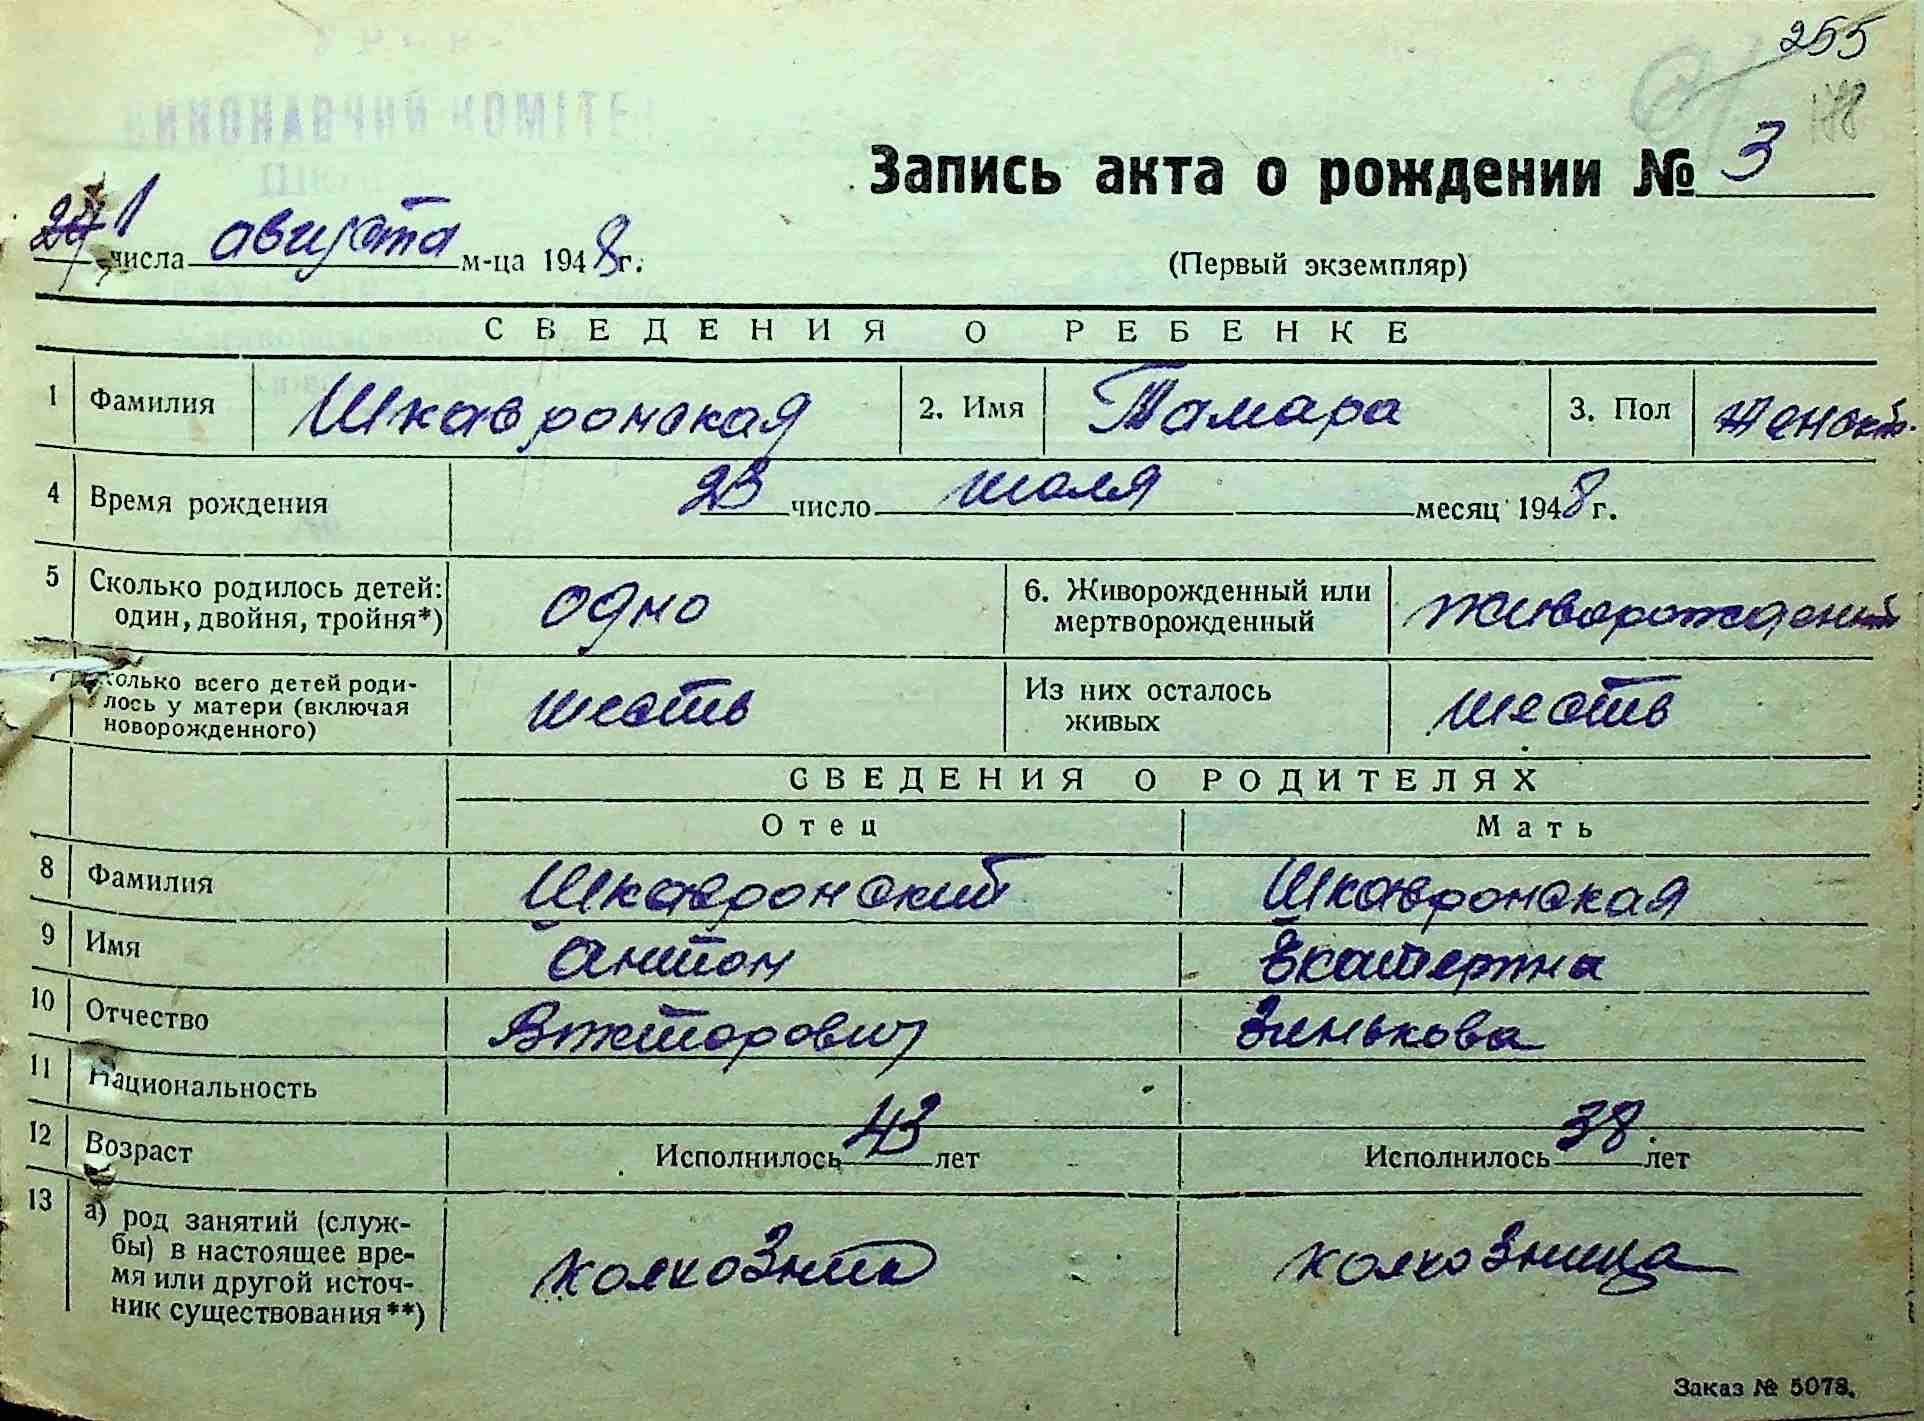 255
188
ВИКОНАВЧИЙ КОМІТЕ
Запись акта о рождении № 3
1 числа августа м-ца 1948 г.
(Первый экземпляр)
СВЕДЕНИЯ О РЕБЕНКЕ
1 Фамилия Шкавронская 2. Имя Тамара 3. Пол женск.
4 Время рождения 23 число июля месяц 1948 г.
5 Сколько родилось детей: один, двойня, тройня*) одно 6. Живорожденный или мертворожденный живорожденный
колько всего детей родилось у матери (включая новорожденного) шесть Из них осталось живых шесть
СВЕДЕНИЯ О РОДИТЕЛЯХ
Отец Мать
8 Фамилия Шкавронский Шкавронская
9 Имя Антон Екатерина
10 Отчество Викторович Зинькова
11 Национальность
12 Возраст Исполнилось 43 лет Исполнилось 38 лет
13 а) род занятий (служ-
бы) в настоящее вре-
мя или другой источ-
ник существования**) колхозник колхозница
Заказ № 5078.